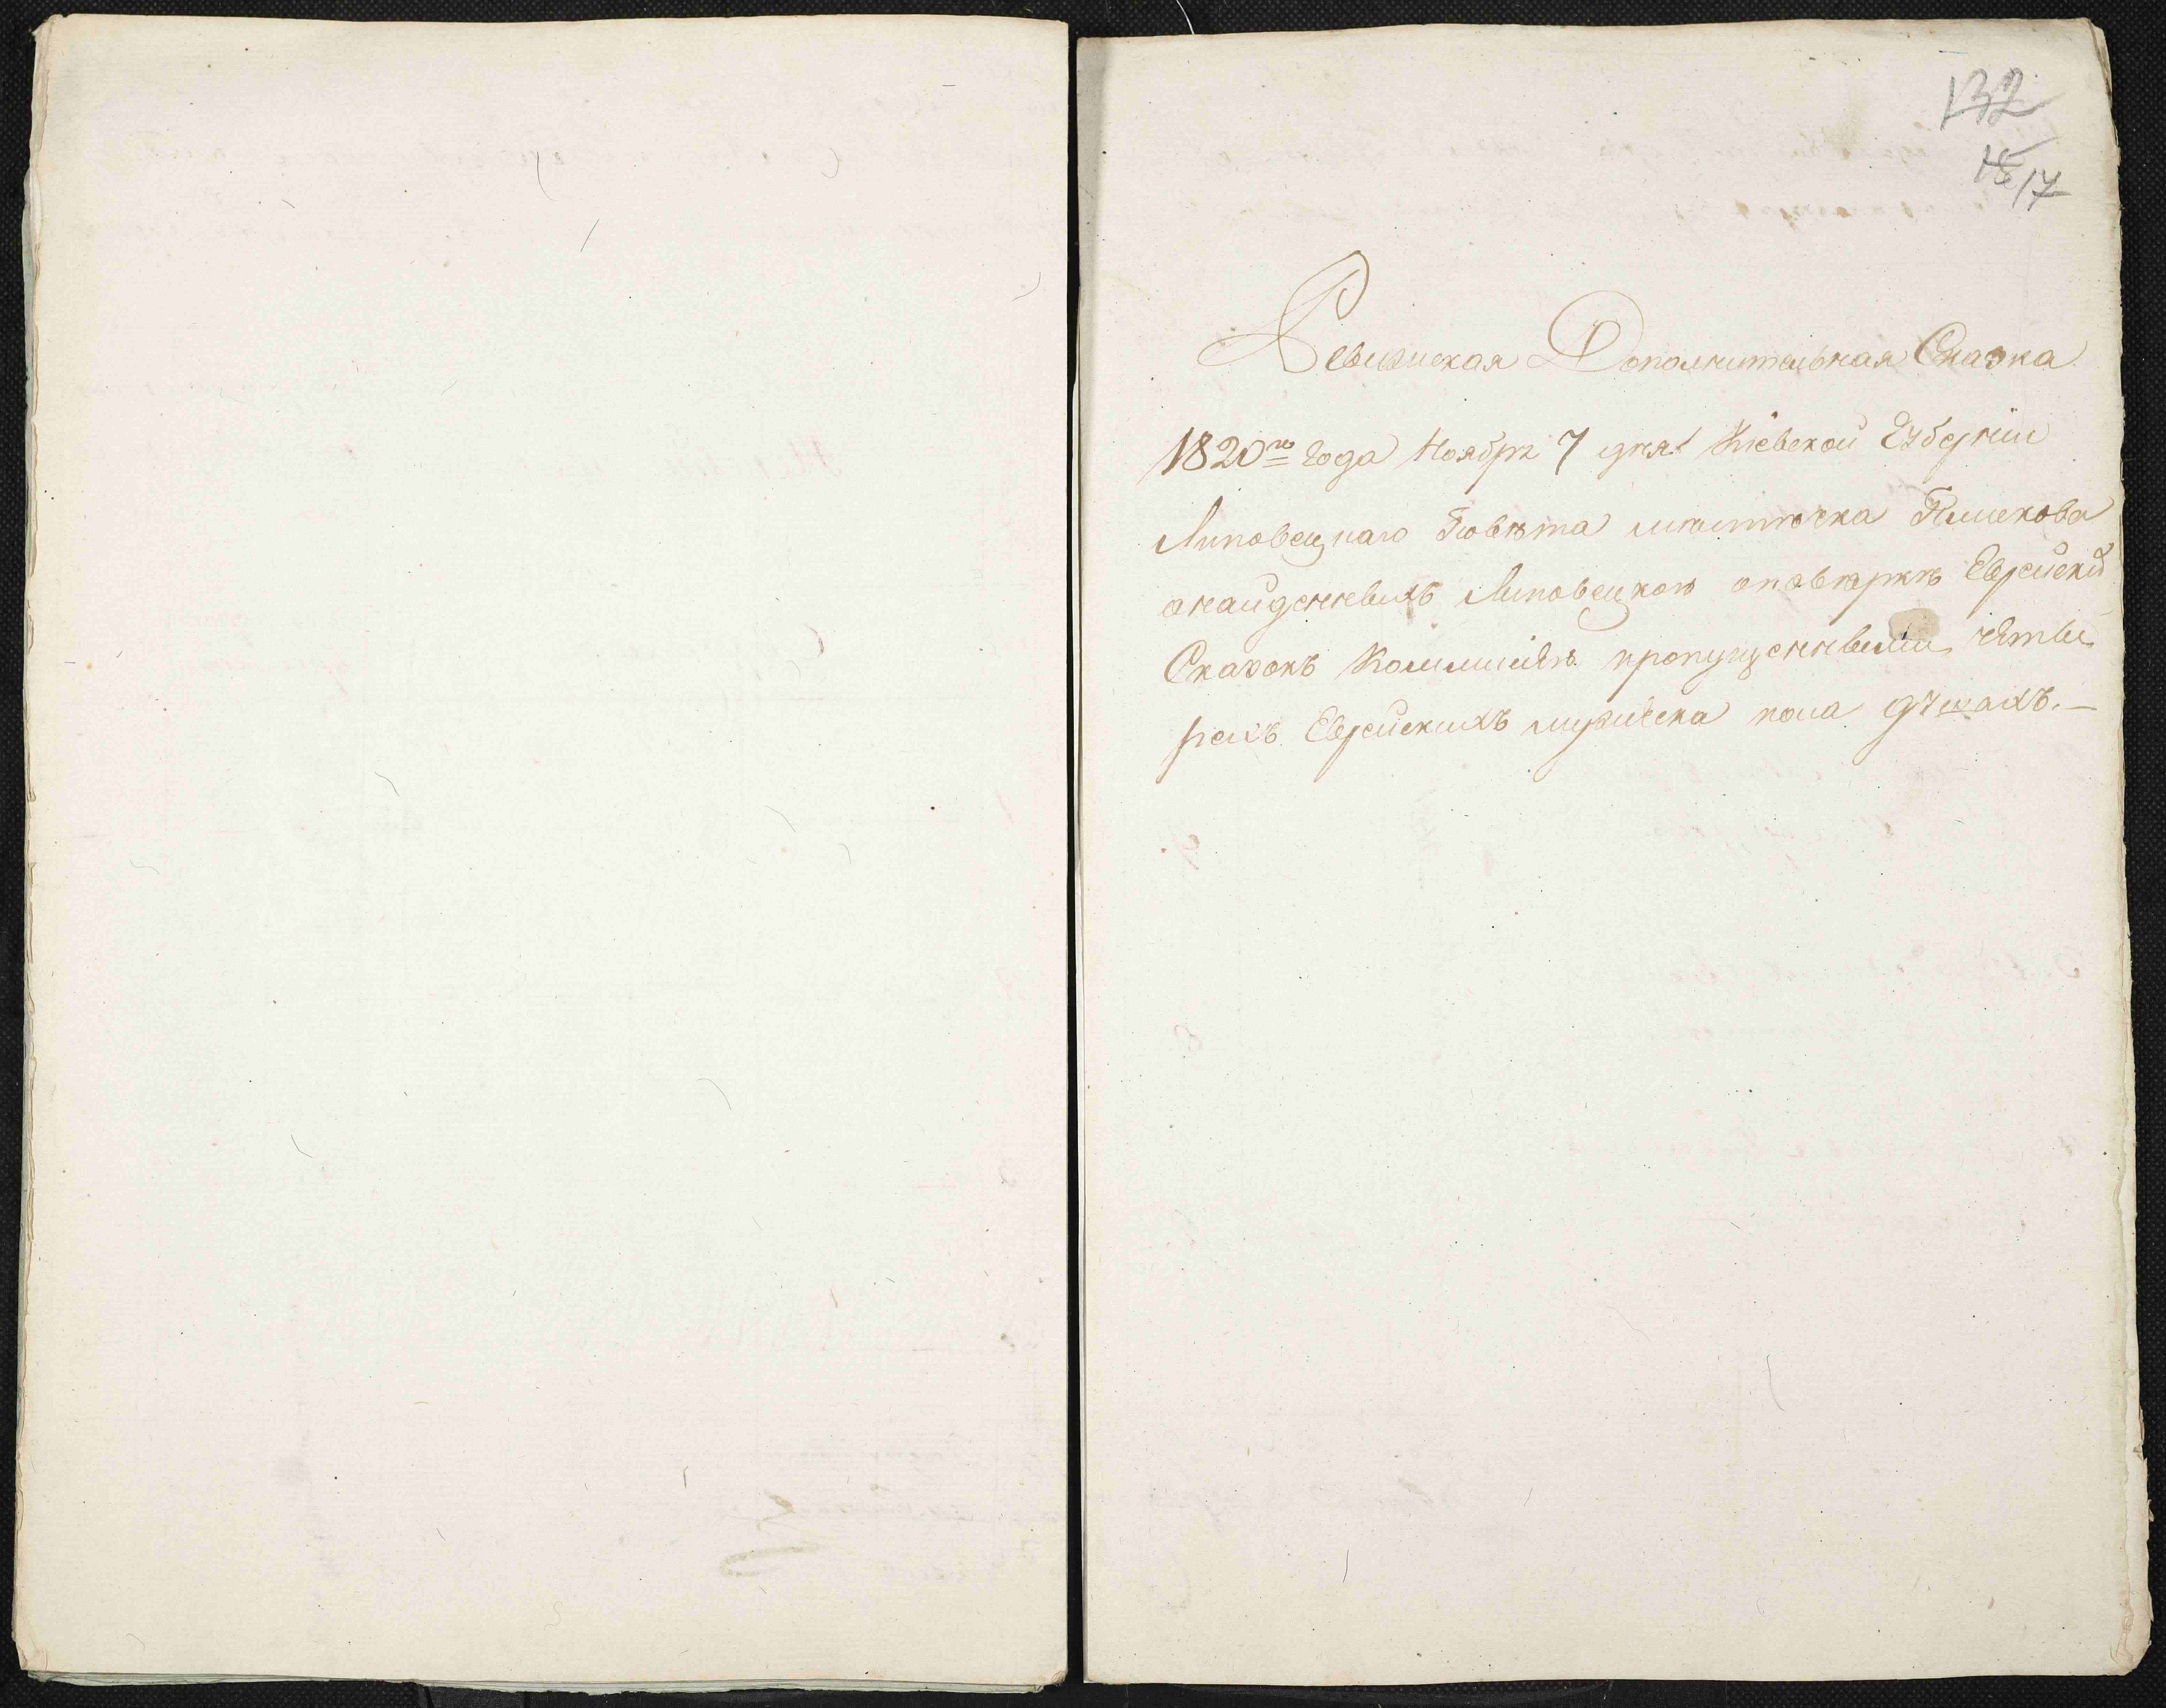 132
15 17
Ревизская Дополнительная Сказка
1820го года Ноября 7 дня Кіевской Губерніи
Липовецкаго Повѣта мѣстѣчка Пликова
онайденныхъ Липовецкою оповѣркѣ Еврейскихъ
Сказокъ Коммисіею пропущенными четы
рехъ Еврейскихъ мужеска пола душахъ.—